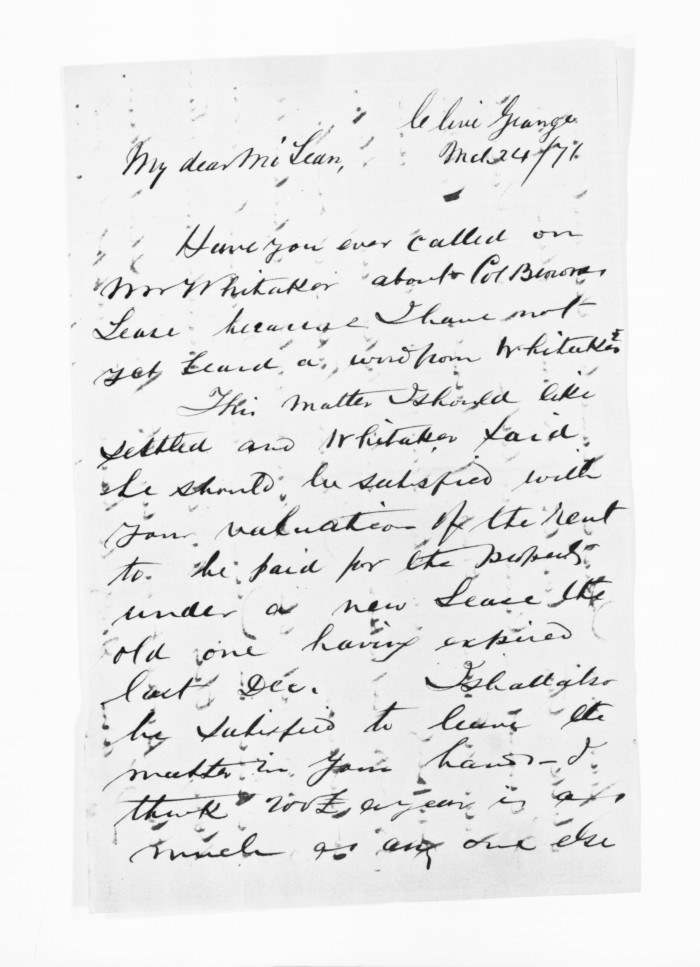 Clive Grange
My dear McLean, Mch 24/71.
Have you ever called on
Mr Whitaker about Col Browns
Lease because I have not
yet heard a word from Whitaker
This matter I should like
settled and Whitaker said
he should be satisfied with
your valuation of the rent
to be paid for the property
under a new Lease the
old one having expired
last Dec. I shall also
be satisfied to leave the
matter in your hands - I
think 200£ a year is as
much as any one else